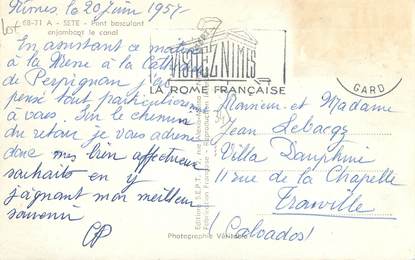 Nimes le 20 Juin 1957
68-31 A - SETE - Pont basculant
enjambant le canal
En assistant ce matin
à la Messe à la Cathé
de Perpignan j'ai
pensé tout particulièrem
à vous. Sur le chemin
du retour je vous adresse
donc mes bien affectueux
souhaits en y
joignant mon meilleur
souvenir
VISITEZ NIMES
LA ROME FRANÇAISE
GARD
Monsieur et Madame
Jean Lebacqz
Villa Dauphine
11 rue de la Chapelle
Trouville
(Calvados)
Photographie Véritable